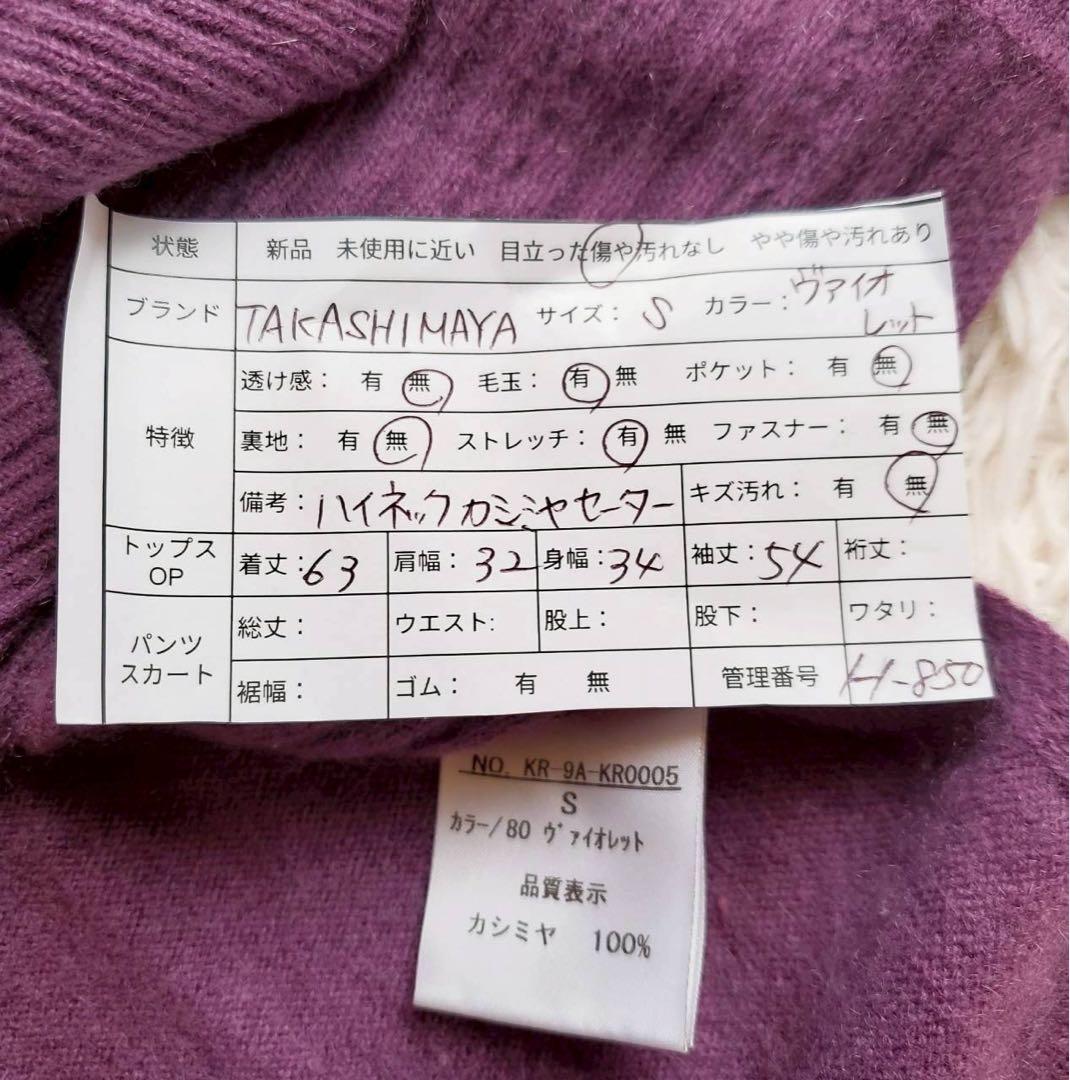 状態 新品 未使用に近い 目立った傷や汚れなし やや傷や汚れあり
ブランド TAKASHIMAYA サイズ： S カラー：ヴァイオ
レット
特徴
透け感： 有 無 毛玉： 有 無 ポケット： 有 無
裏地： 有 無 ストレッチ： 有 無 ファスナー： 有 無
備考：ハイネックカシミヤセーター キズ汚れ： 有 無
トップス
OP
着丈：63 肩幅：32 身幅：34 袖丈：54 裄丈：
パンツ
スカート
総丈： ウエスト: 股上： 股下： ワタリ：
裾幅： ゴム： 有 無 管理番号 H-850
NO. KR-9A-KR0005
S
カラー/80 ヴァイオレット
品質表示
カシミヤ 100%